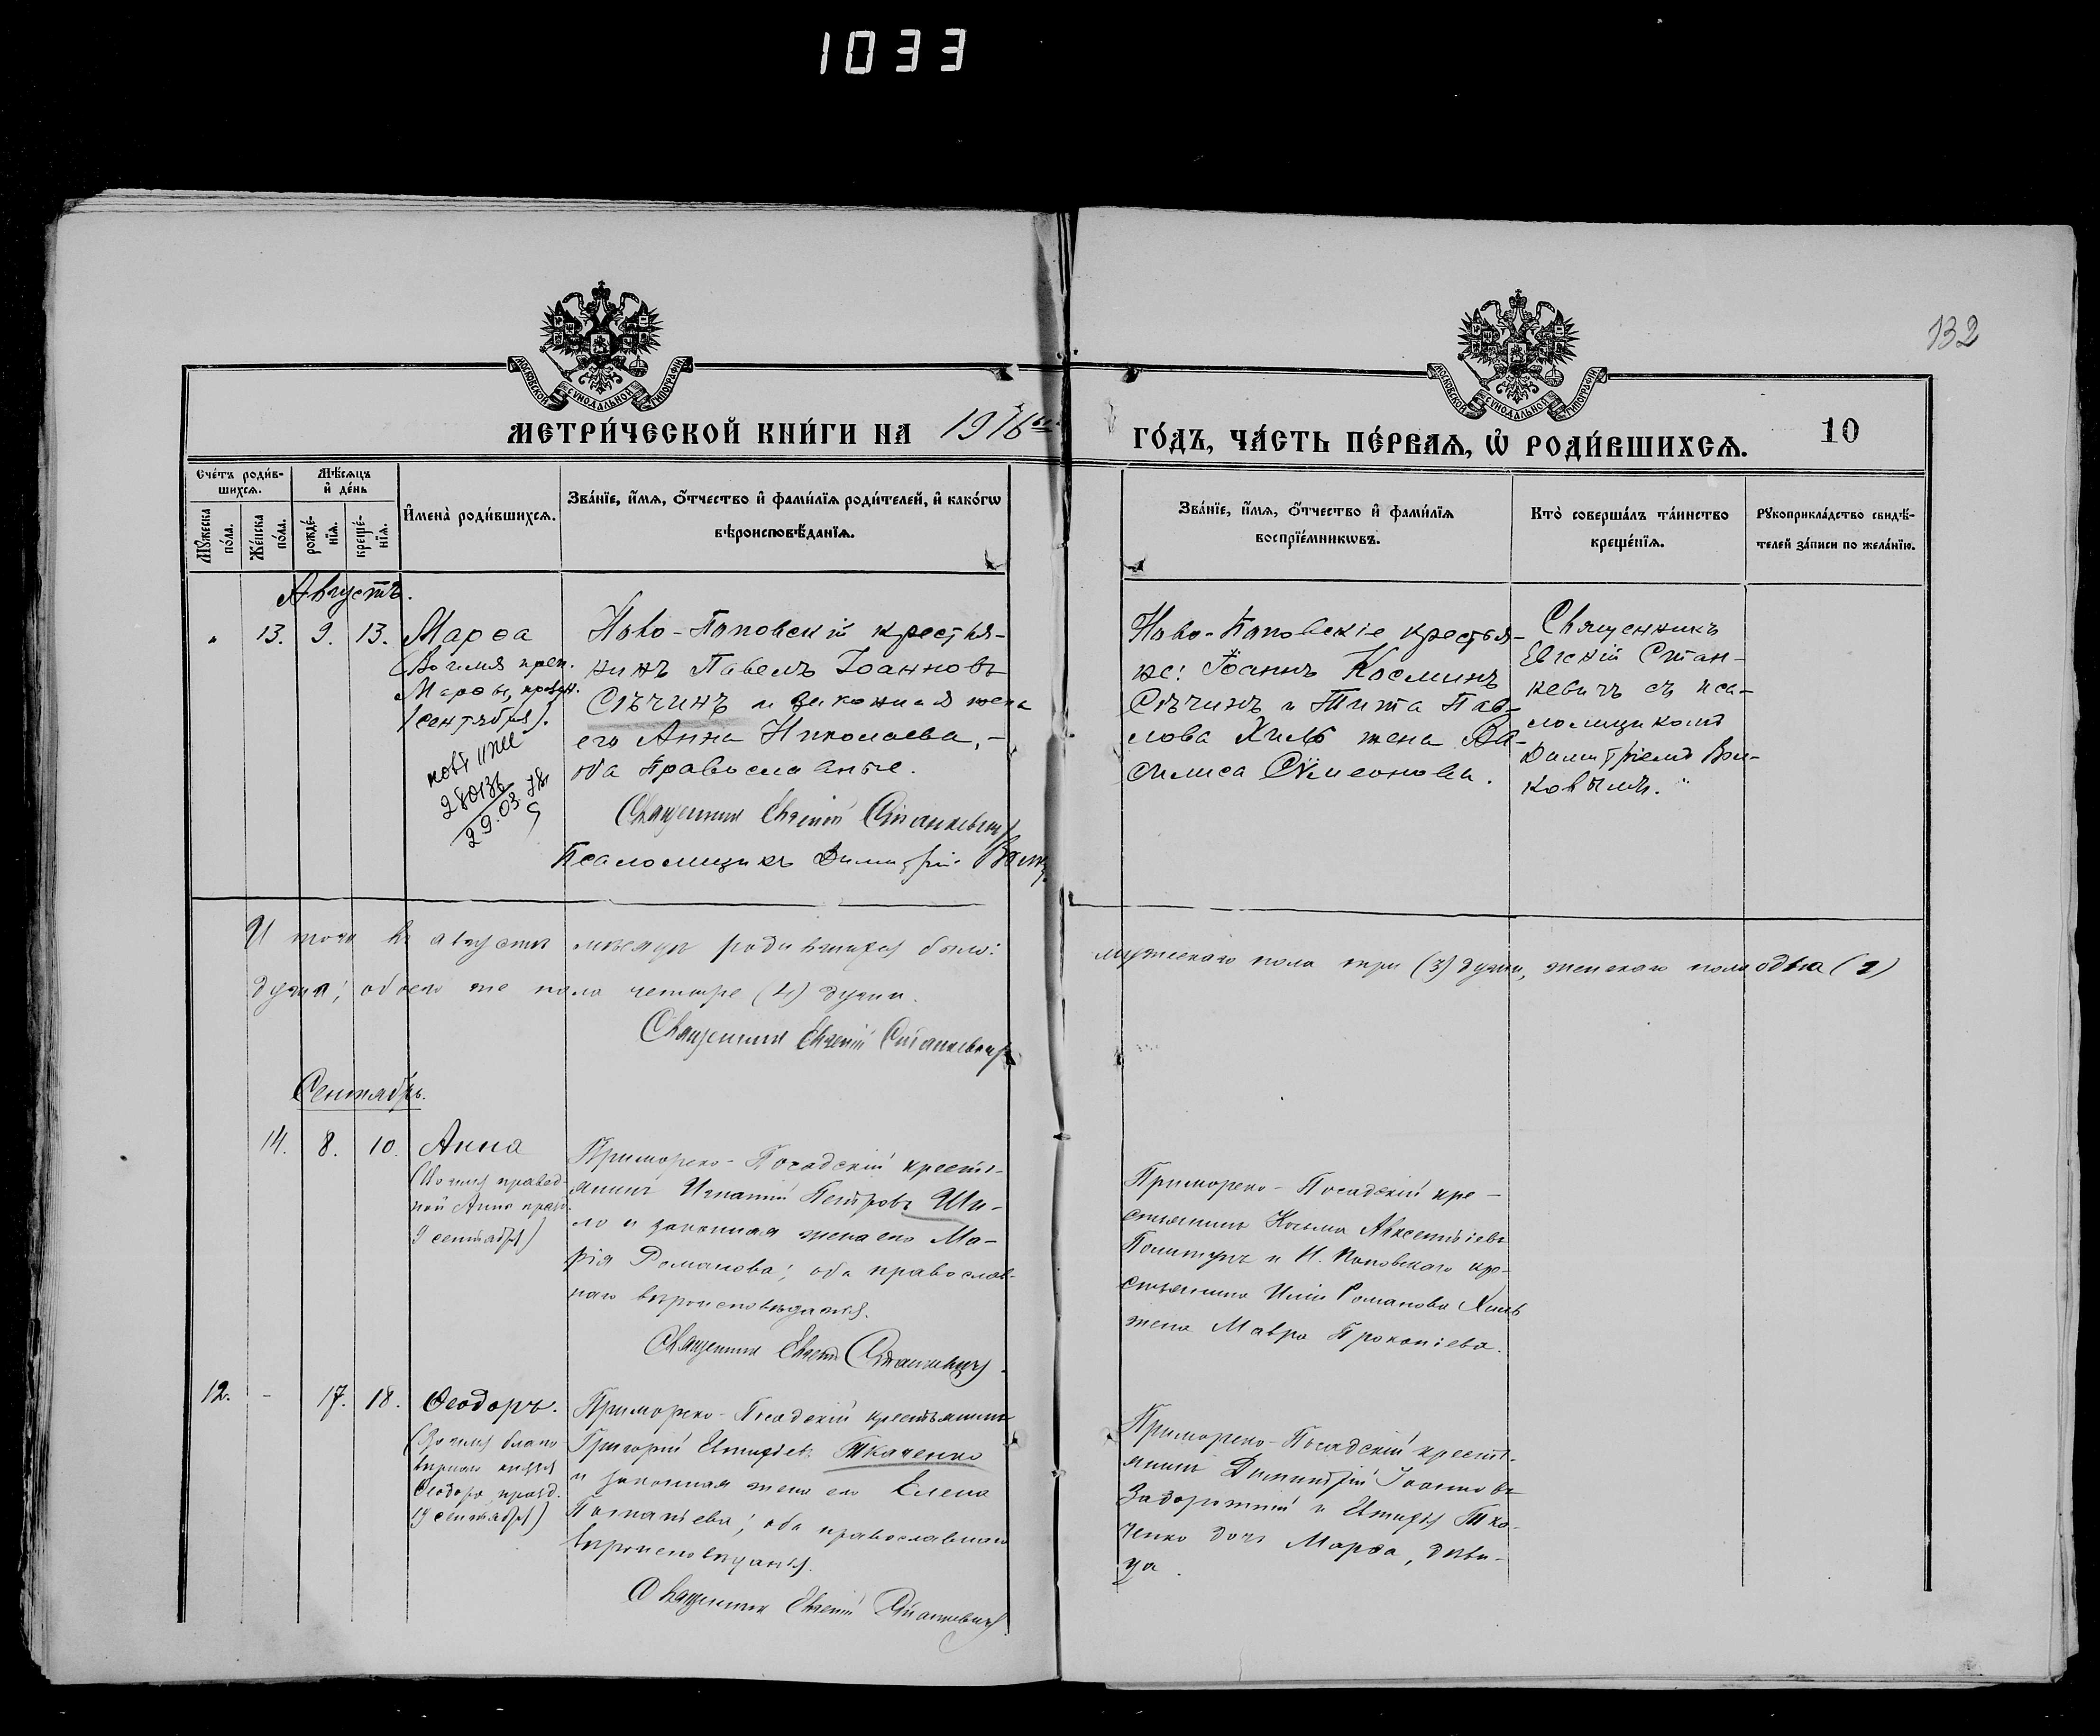 1033
132
МОСКОВСКОЙ СѴНОДАЛЬНОЙ ТИПОГРАФІИ
МОСКОВСКОЙ СѴНОДАЛЬНОЙ ТИПОГРАФІИ
МЕТРИ́ЧЕСКОЙ КНИ́ГИ НА 1916
ГО́ДЪ, ЧА́СТЬ ПЕ́РВАѦ, Ѡ҆ РОДИ́ВШИХСѦ.
10
Счéтъ роди́в-
шихсѧ.
Мѣ́сѧцъ
и҆ де́нь
Мꙋ́жеска
по́ла.
Же́нска
по́ла.
рожде́-
нїѧ.
креще́-
нїѧ.
И҆мена̀ роди́вшихсѧ.
Зва́нїе, и҆́мѧ, ѻ҆́тчество и҆ фами́лїѧ роди́телей, и҆ како́гѡ
вѣроисповѣ́данїѧ.
Зва́нїе, и҆́мѧ, ѻ҆́тчество и҆ фами́лїѧ
воспрїе́мникѡвъ.
Кто̀ соверша́лъ та́инство
креще́нїѧ.
Рꙋкоприкла́дство свидѣ́-
телей за́писи по жела́нїю.
Августъ.
" 13. 9. 13. Марѳа
(Во имя преп.
Марѳы, празд.
1 сентября).
28013
29.03.78
Ново-Поповскій крестья-
нинъ Павелъ Іоанновъ
Сѣчинъ и законная жена
его Анна Николаева, -
оба православные.
Священникъ Евгеній Станкевичъ
Псаломщикъ Димитрій
Ново-Поповскіе крестья-
не: Іоаннъ Косминъ
Сѣчинъ и Тита Пав-
лова Хиль жена Ва-
силиса Сѵмеонова.
Священникъ
Евгеній Стан-
кевичъ съ пса-
ломщикомъ
Димитріемъ
Итого въ августѣ мѣсяцѣ родившихся было:
мужескаго пола три (3) души, женскаго пола одна (1)
душа; обоего же пола четыре (4) души.
Священникъ Евгеній Станкевичъ
Сентябрь.
14. 8. 10. Анна
(Во имя правед-
ной Анны празд.
9 сентября)
Приморско-Посадскій кресть-
янинъ Игнатій Петровъ Ши-
ло и законная жена его Ма-
рія Романова; оба православ-
наго вѣроисповѣданія.
Священникъ Евгеній Станкевичъ
Приморско-Посадскій кре-
стьянинъ Косьма Авксентіевъ
и Н. Поповскаго кре-
стьянина Иліи Романова Хиль
жена Мавра Прокопіева.
12. - 17. 18. Ѳеодоръ.
(Во имя благо-
вѣрнаго князя
Ѳеодора, празд.
19 сентября)
Приморско-Посадскій крестьянинъ
Григорій Ткаченко
и законная жена его Елена
Игнатьева; оба православнаго
вѣроисповѣданія.
Священникъ Евгеній Станкевичъ
Приморско-Посадскій кресть-
янинъ Димитрій Іоанновъ
Задорожній и Тка-
ченко дочь Марѳа, дѣви-
ца.